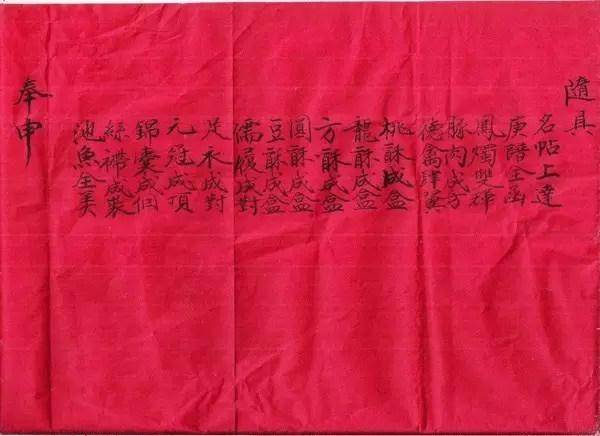 隨具
名帖上達
庚陪全函
鳳燭雙輝
豚肉成方
德禽肆翼
桃酥成盒
龍酥成盒
方酥成盒
圓酥成盒
豆酥成盒
儒履成對
足衣成對
元冠成頂
錦囊成個
絲帶成裝
池魚全美
奉申